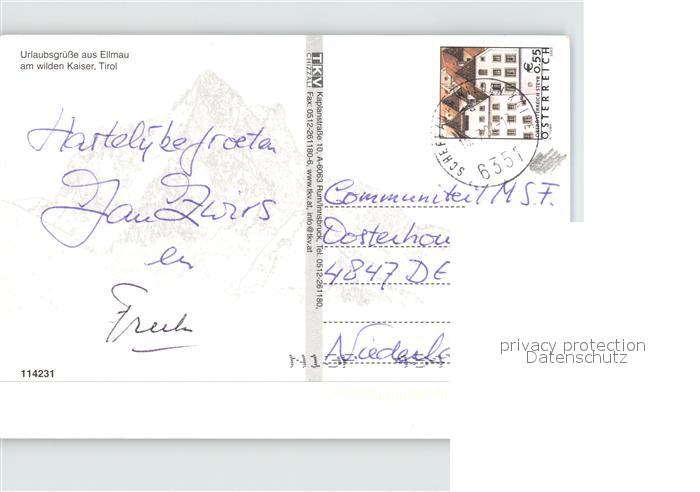 Urlaubsgrüße aus Ellmau
am wilden Kaiser, Tirol
Hartelijke groeten
Jan Zwirs
en
114231
TKV
CHIZZALI
Kaplanstraße 10, A-6063 Rum/Innsbruck, Tel. 0512-261180,
Fax: 0512-261180-6, www.tkv.at, info@tkv.at
€ 0.55
ÖSTERREICH
6351
Communiteit M.S.F.
Oosterhou
4847 DE
Niederla
privacy protection
Datenschutz